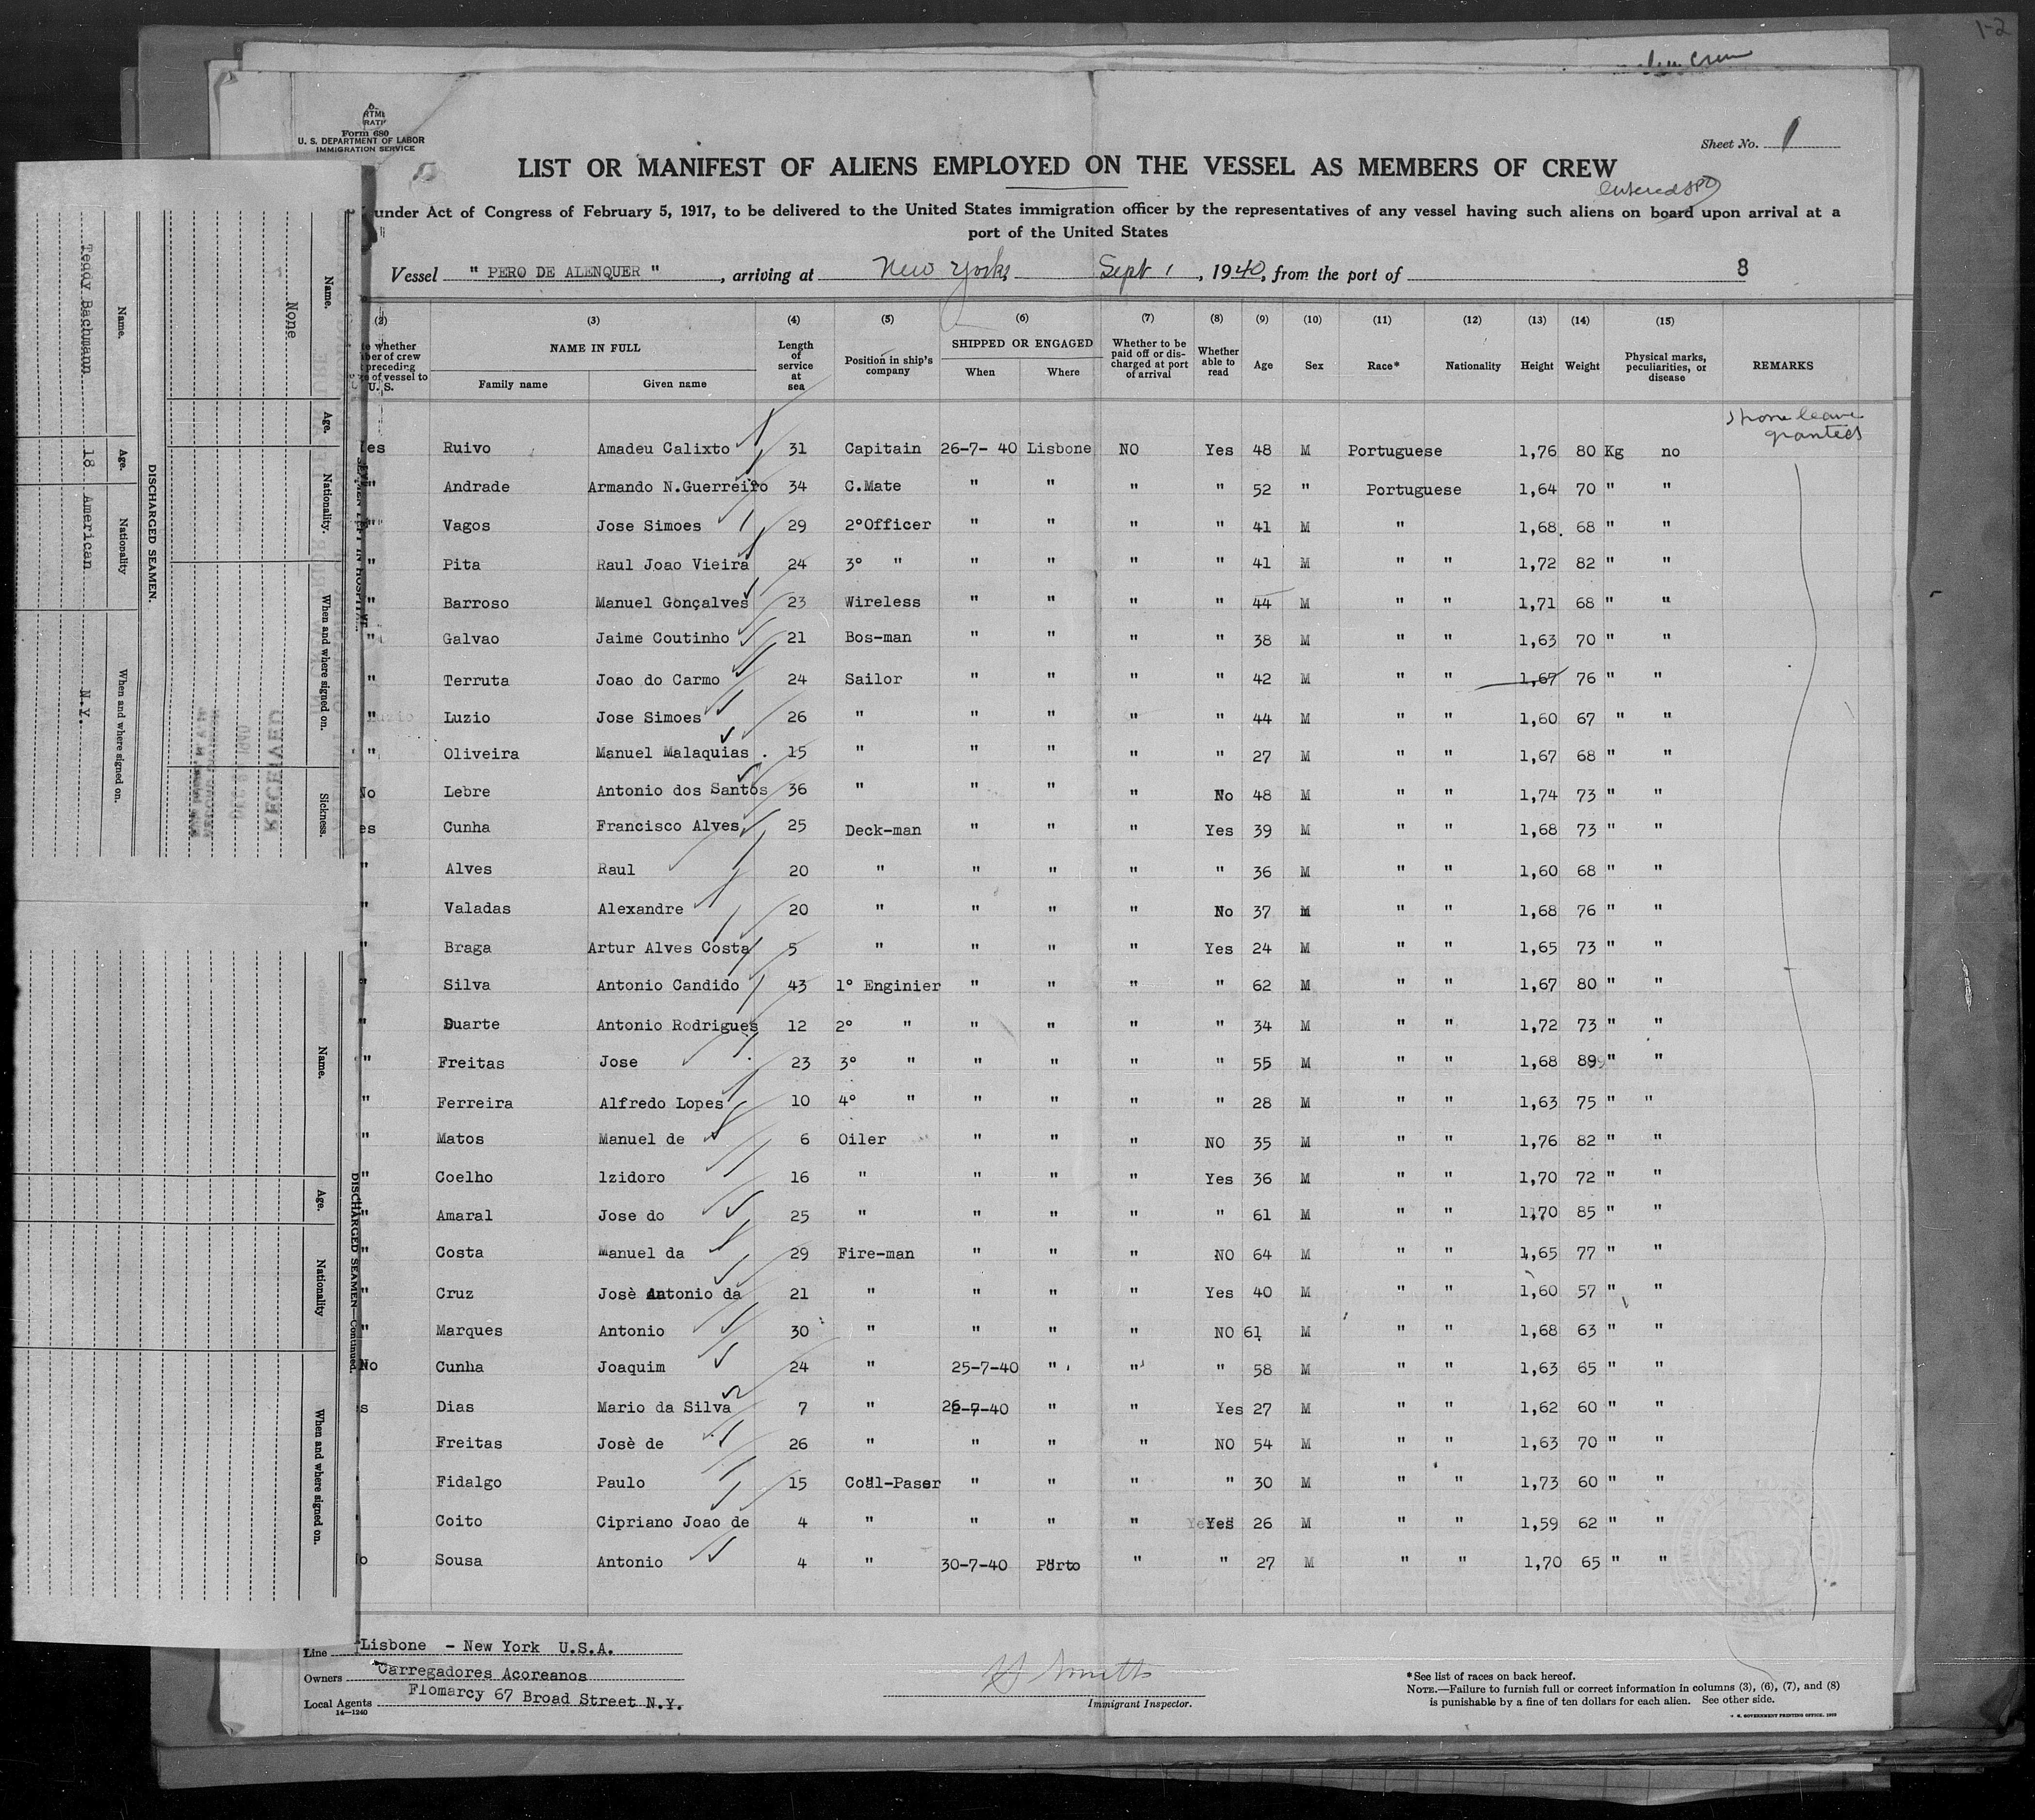 1-2
Crew
Form 680
U. S. DEPARTMENT OF LABOR
IMMIGRATION SERVICE
Sheet No. 1
LIST OR MANIFEST OF ALIENS EMPLOYED ON THE VESSEL AS MEMBERS OF CREW
under Act of Congress of February 5, 1917, to be delivered to the United States immigration officer by the representatives of any vessel having such aliens on board upon arrival at a
port of the United States
Vessel " PERO DE ALENQUER " , arriving at New York, Sept 1 , 1940, from the port of 8
(2) (3) (4) (5) (6) (7) (8) (9) (10) (11) (12) (13) (14) (15)
whether
of crew
preceding
of vessel to
U. S.
NAME IN FULL
Family name Given name
Length of service at sea
Position in ship's company
SHIPPED OR ENGAGED
When Where
Whether to be paid off or discharged at port of arrival
Whether able to read
Age Sex Race* Nationality Height Weight
Physical marks, peculiarities, or disease
REMARKS
leave
granted
es Ruivo Amadeu Calixto 31 Capitain 26-7- 40 Lisbone NO Yes 48 M Portuguese 1,76 80 Kg no
" Andrade Armando N.Guerreiro 34 C.Mate " " " " 52 " Portuguese 1,64 70 " "
" Vagos Jose Simoes 29 2°Officer " " " " 41 M " 1,68. 68 " "
" Pita Raul Joao Vieira 24 3° " " " " " 41 M " " 1,72 82 " "
" Barroso Manuel Gonçalves 23 Wireless " " " " 44 M " " 1,71 68 " "
" Galvao Jaime Coutinho 21 Bos-man " " " " 38 M " " 1,63 70 " "
" Terruta Joao do Carmo 24 Sailor " " " " 42 M " " 1,67 76 " "
" Luzio Jose Simoes 26 " " " " " 44 M " " 1,60 67 " "
" Oliveira Manuel Malaquias . 15 " " " " " 27 M " " 1,67 68 " "
No Lebre Antonio dos Santos 36 " " " " No 48 M " " 1,74 73 " "
es Cunha Francisco Alves 25 Deck-man " " " Yes 39 M " " 1,68 73 " "
" Alves Raul 20 " " " " " 36 M " " 1,60 68 " "
" Valadas Alexandre 20 " " " " No 37 M " " 1,68 76 " "
" Braga Artur Alves Costa 5 " " " " Yes 24 M " " 1,65 73 " "
" Silva Antonio Candido 43 1° Enginier " " " " 62 M " " 1,67 80 " "
" Duarte Antonio Rodrigues 12 2° " " " " " 34 M " " 1,72 73 " "
" Freitas Jose 23 3° " " " " " 55 M " " 1,68 89 " "
" Ferreira Alfredo Lopes 10 4° " " " " " 28 M " " 1,63 75 " "
" Matos Manuel de 6 Oiler " " " NO 35 M " " 1,76 82 " "
" Coelho lzidoro 16 " " " " Yes 36 M " " 1,70 72 " "
" Amaral Jose do 25 " " " " " 61 M " " 1,70 85 " "
" Costa Manuel da 29 Fire-man " " " NO 64 M " " 1,65 77 " "
" Cruz Josè Antonio da 21 " " " " Yes 40 M " " 1,60 57 " "
" Marques Antonio 30 " " " " NO 61 M " " 1,68 63 " "
No Cunha Joaquim 24 " 25-7-40 " " " 58 M " " 1,63 65 " "
s Dias Mario da Silva 7 " 26-7-40 " " Yes 27 M " " 1,62 60 " "
Freitas Josè de 26 " " " " NO 54 M " " 1,63 70 " "
Fidalgo Paulo 15 Coal-Paser " " " " 30 M " " 1,73 60 " "
Coito Cipriano Joao de 4 " " " " Yes 26 M " " 1,59 62 " "
o Sousa Antonio 4 " 30-7-40 Porto " " 27 M " " 1,70 65 " "
Line Lisbone - New York U.S.A.
Owners Carregadores Acoreanos
Local Agents Flomarcy 67 Broad Street N.Y.
14—1240
Immigrant Inspector.
*See list of races on back hereof.
NOTE.—Failure to furnish full or correct information in columns (3), (6), (7), and (8)
is punishable by a fine of ten dollars for each alien. See other side.
GOVERNMENT PRINTING OFFICE
SEAMEN LEFT IN HOSPITAL
Name. Age. Nationality. When and where signed on. Sickness.
None
RECEIVED
DISCHARGED SEAMEN.
Name. Age. Nationality When and where signed on.
Teddy Bachmann 18 American N.Y.
DISCHARGED SEAMEN—Continued.
Name. Age. Nationality When and where signed on.